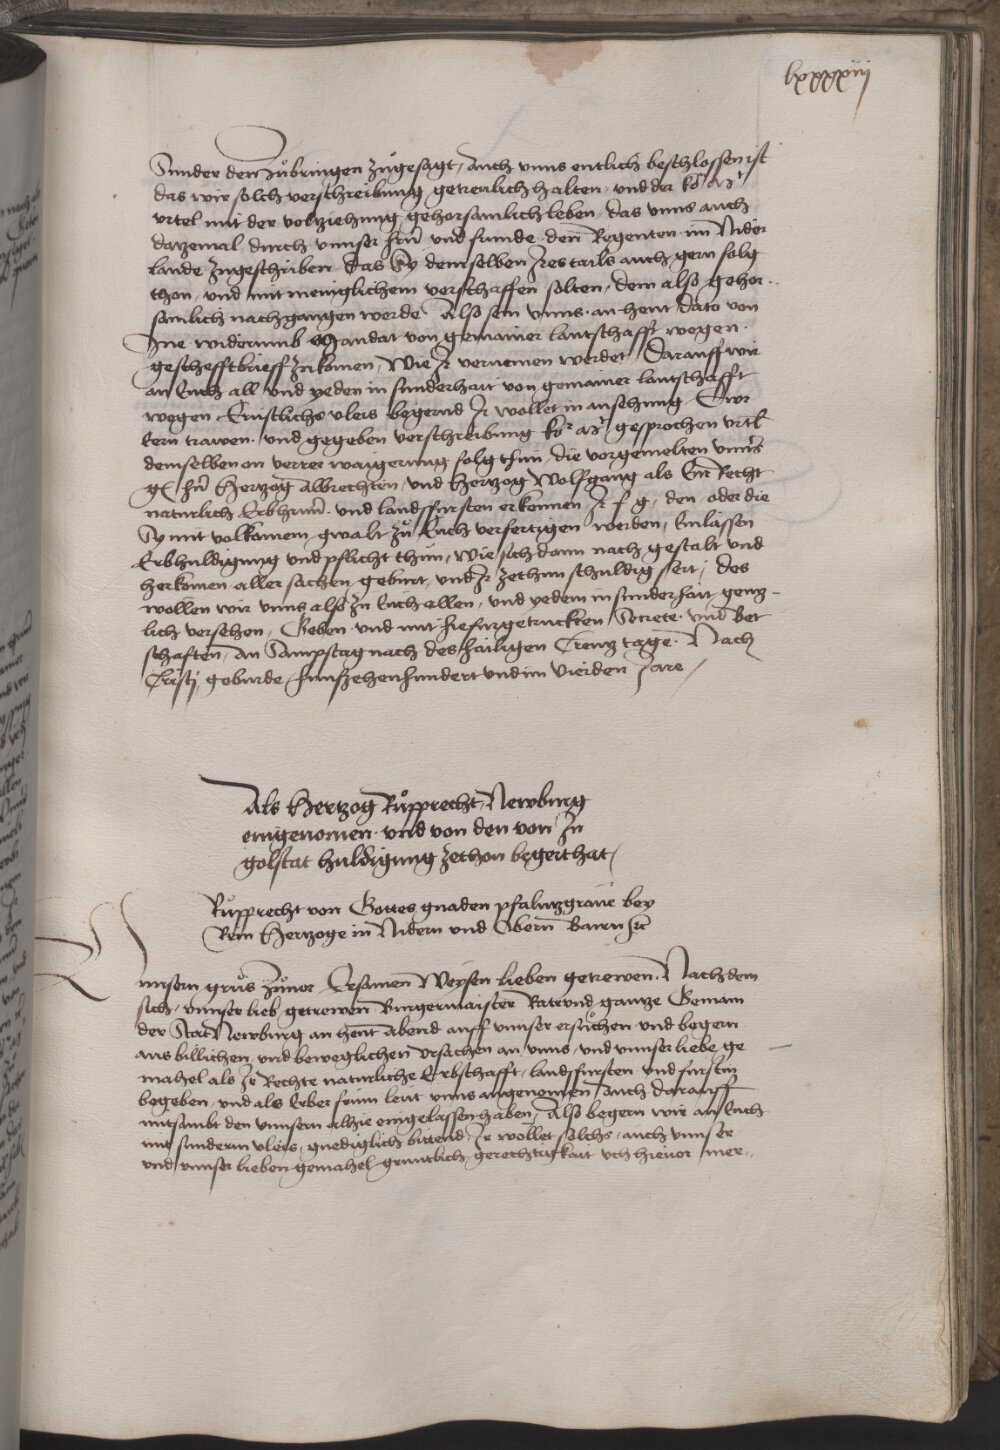 lxxxxiij
Sunder den zubringen zugesagt, Auch vnns entlich beschlossen ist
das wir solch verschreibung getreulich halten, vnd der ko mt
vrtel mit der volziehung gehorsamlich leben, das vnns auch
datzemal durch vnnser hrn vnd frunde den Regenten im Nider
lande zugeschriben das Sy demselben Jres tails auch gern folg
thon, vnd mit meniglichem verschaffen solten, dem also gehor
samlich nachgangen werde Also sein vnns an heut dato von
Jne widerumb Mandat von gemainer lantschafft wegen
geschefftbrieff zukomen, Wie Jr vernemen werdet Darauff wir
an Euch all vnd yeden in sunderhait von gemainer lantschafft
wegen Ernstlichs vleis begernd Jr wollet in ansehung Ewr
Eern trawen vnd gegeben verschreibung kor mt gesprochen vrtl
demselben on verrer waigerung folg thun, die vorgemelten vnnser
g hrn Hertzog Albrechten, vnd Hertzog Wolfgang als Eur Recht
naturlich Erbherrn vnd landsfursten erkennen Jr f g, den oder die
Sy mit volkomem gwalt zu Euch verfertigen werden, Einlassen
Erbhuldigung vnd pflicht thun, wie sich dann nach gestalt vnd
herkomen aller sachen, geburt, vnd Jr zethun schuldig seit, des
wollen wir vnns also zu Euch allen, vnd yedem in sunderhait, gentz-
lich versehen, Geben vnd mit hiefurgetruckten Secrete vnd Bet
schafften, An Sampstag nach des hailigen Creutz tage Nach
Cristi, geburde, funfzehenhundert vnd im Vierden Jare /
Als Hertzog Rupprecht, Newburg
eingenomen vnd von den von Jn
golstat huldigung zethon begert hat,
Rupprecht von Gottes gnaden pfalnzgraue bey
Rein Hertzoge in Nidern vnd Obern Bairn etc
Vnnsern grus zuuor, Ersamen Weysen lieben getrewen. Nachdem
sich, vnnser lieb getrewen Burgermaister Rat vnd gantze Gemain
der Stat Newburg an heut Abend auff vnnser ersuchen vnd begern
aus billichen, vnd beweglichen vrsachen an vnns, vnd vnnser liebe ge
mahel als Jr Rechte naturliche Erbschafft, landsfursten vnd furstin
begeben, vnd als Erber frum leut vnns angenomen Auch darauff
mitsambt den vnnsern alhie eingelassen haben, Also begern wir an Euch
mit sunderm vleis, gnediglich bittend, Jr wollet solchs, auch vnnser
vnd vnnser lieben gemahel gruntlich gerechtigkait vch hieuor mer